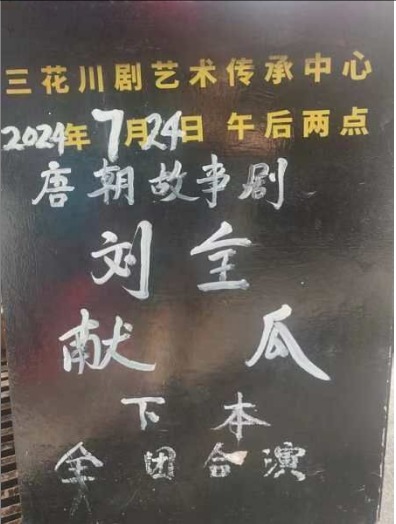 三花川剧艺术传承中心
2024年7月24日 午后两点
唐朝故事剧
刘全
献瓜
下本
全团合演